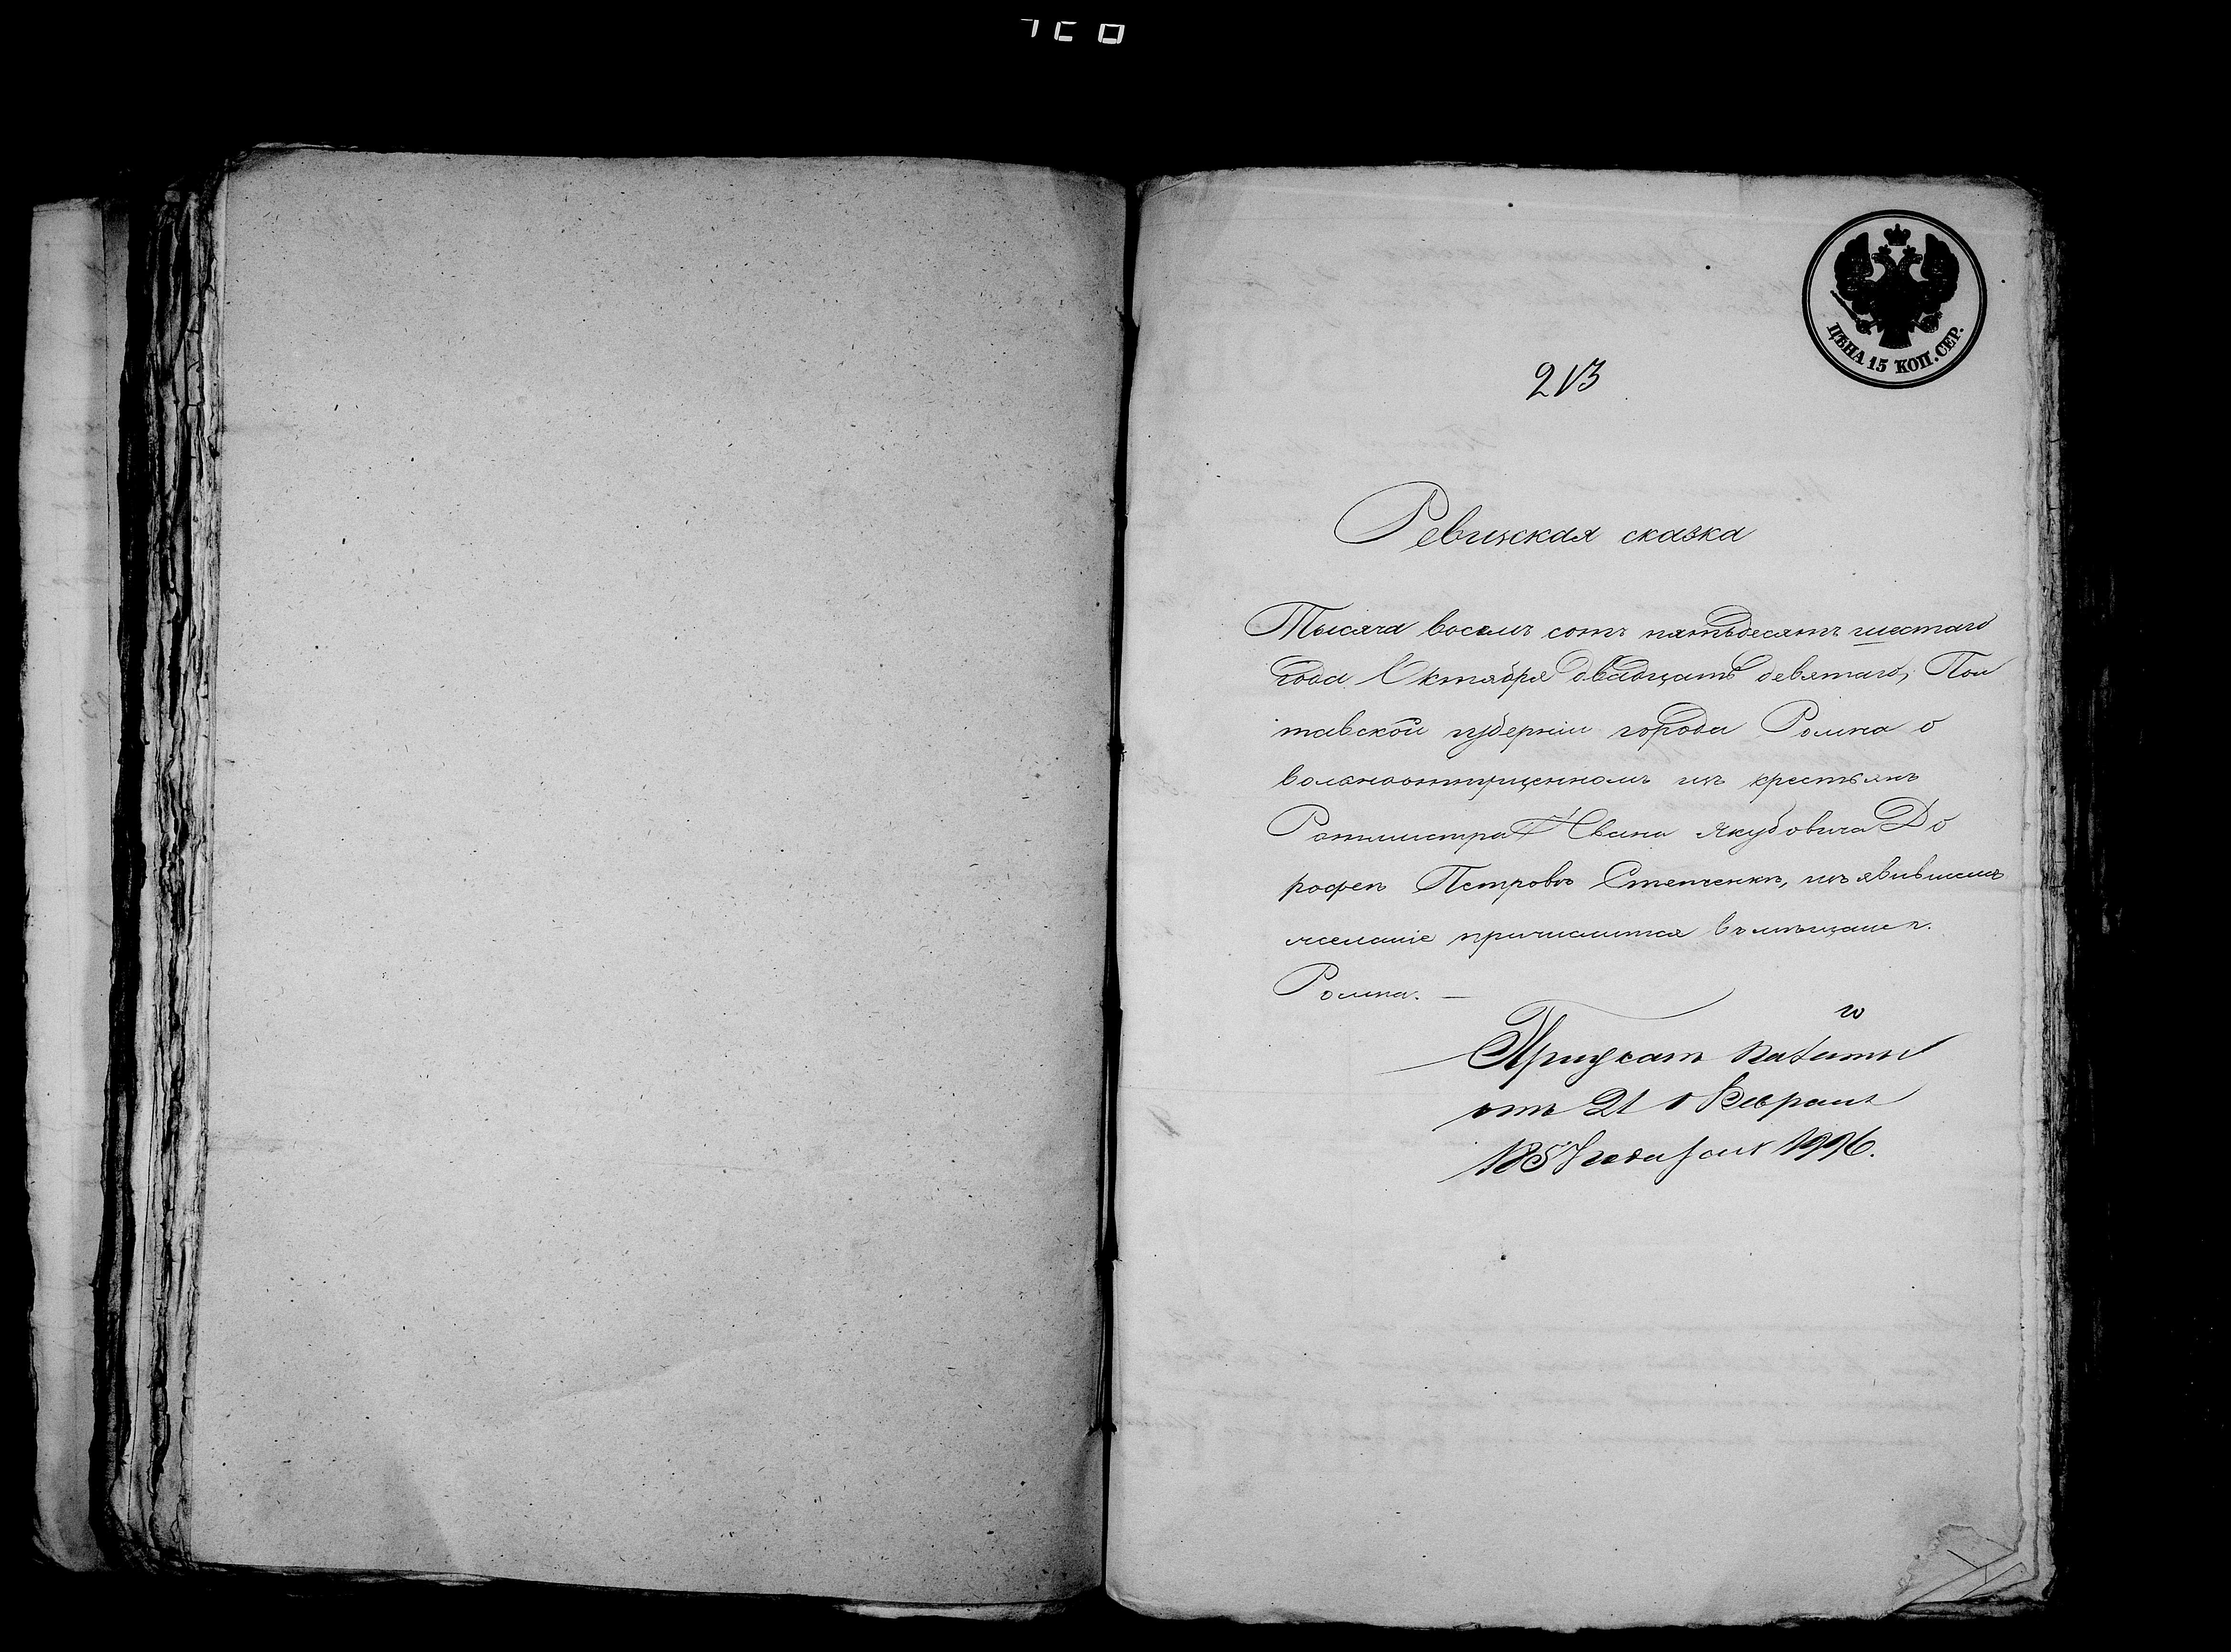 ЦѢНА 15 КОП. СЕР.
213
Ревизская сказка
Тысяча восемъ сотъ пятьдесятъ шестаго
года Октября двадцать девятаго, Пол
тавской губерніи города Ромна о
вольноотпущенномъ изъ крестьянъ
Ротмистра Ивана Якубовича До
рофеѣ Петровѣ Степченкѣ, изъявившемъ
желаніе причислится въ мѣщане г.
Ромна.
отъ 21 Февраля
1857 года за № 1996.